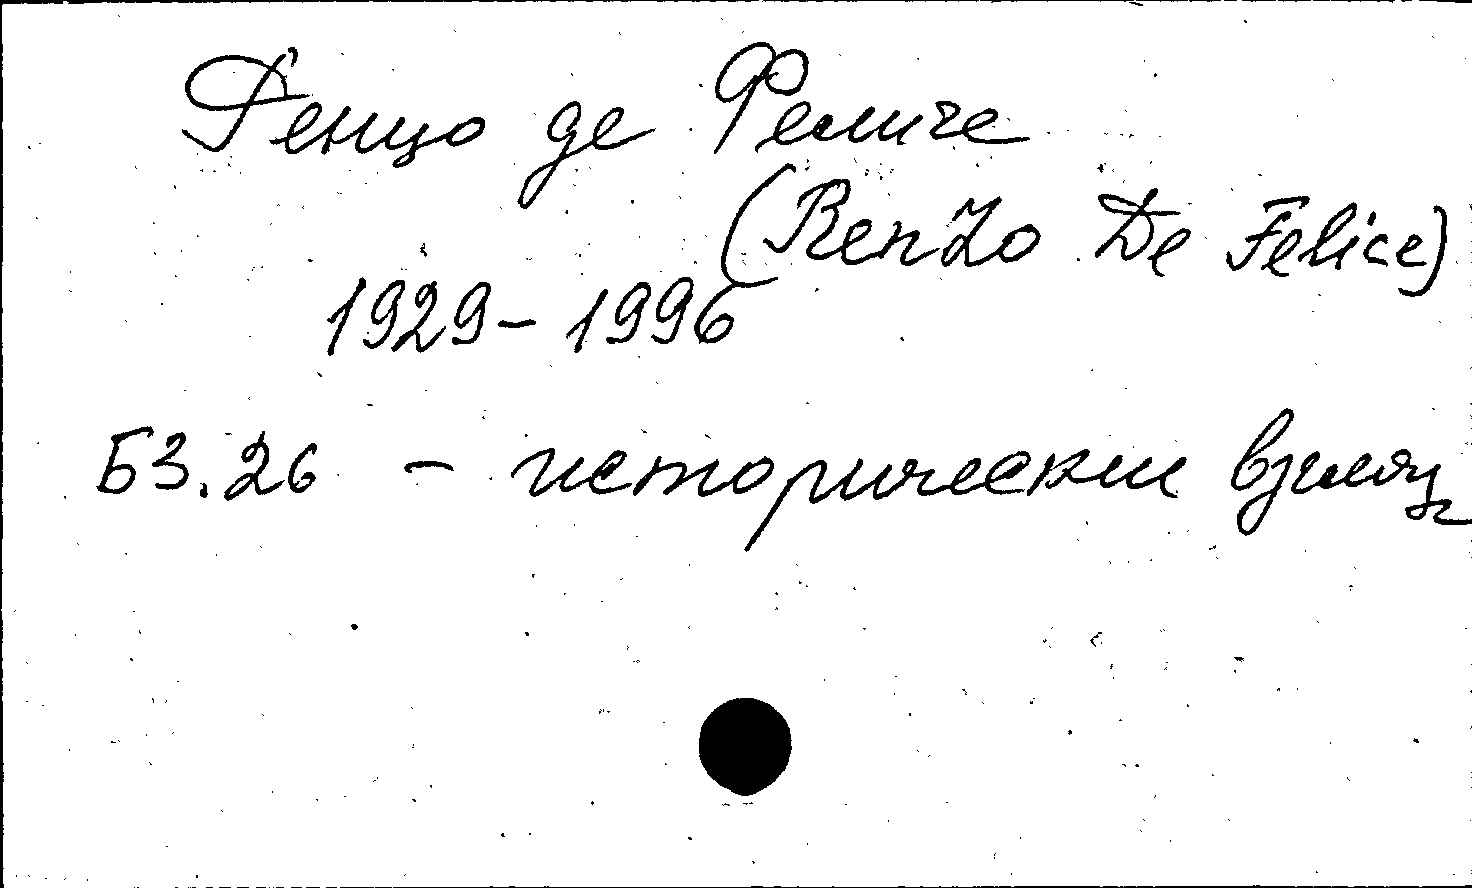 Ренцо де Феличе
(Renzo De Felice)
1929-1996
Б3.26 - исторически взгляд